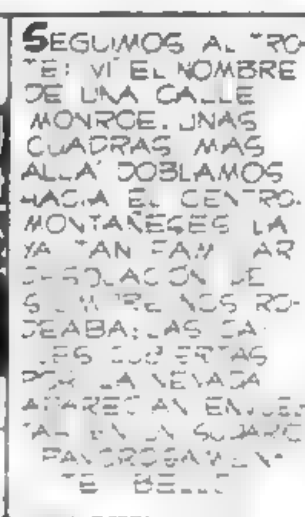 SEGUIMOS AL TRO-
TE: VI EL NOMBRE
DE UNA CALLE
MONROE. UNAS
CUADRAS MAS
ALLA' DOBLAMOS
HACIA EL CENTRO.
MONTAÑESES LA
YA TAN FAMILIAR
DESOLACION DE
SIEMPRE NOS RO-
DEABA: LAS CA-
LLES CUBIERTAS
POR LA NEVADA
APARECIAN ENVUEL
TAS EN UN SUDARIO
PAVOROSAMEN
TE BELLO